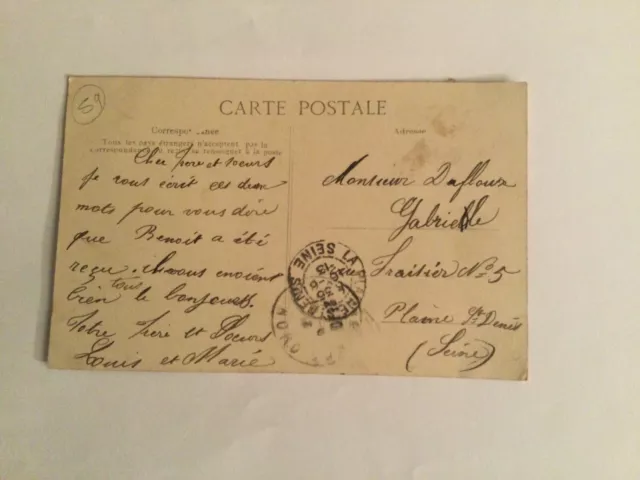 59
CARTE POSTALE
Correspondance
Tous les pays étrangers n'acceptent pas la
correspondance au recto se renseigner à la poste
Adresse
Cher frère et soeurs
je vous écrit ces deux
mots pour vous dire
que Benoit a été
reçu. vous envoient
bien tous le bonjour
Votre frère et Soeurs
Louis et Marie
Monsieur Dufloux
Gabrielle
Fraisier No 5
Plaine St Denis
(Seine)
LA PLAINE ST DENIS
SEINE